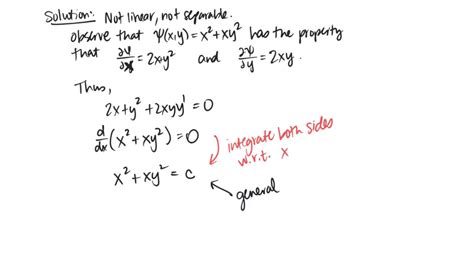 Solution: Not linear, not separable.
observe that ψ(x,y) = x² + xy² has the property
that ∂ψ/∂x = 2x+y² and ∂ψ/∂y = 2xy.
Thus,
2x + y² + 2xyy' = 0
d/dx (x² + xy²) = 0
integrate both sides
w.r.t. x
x² + xy² = c
general